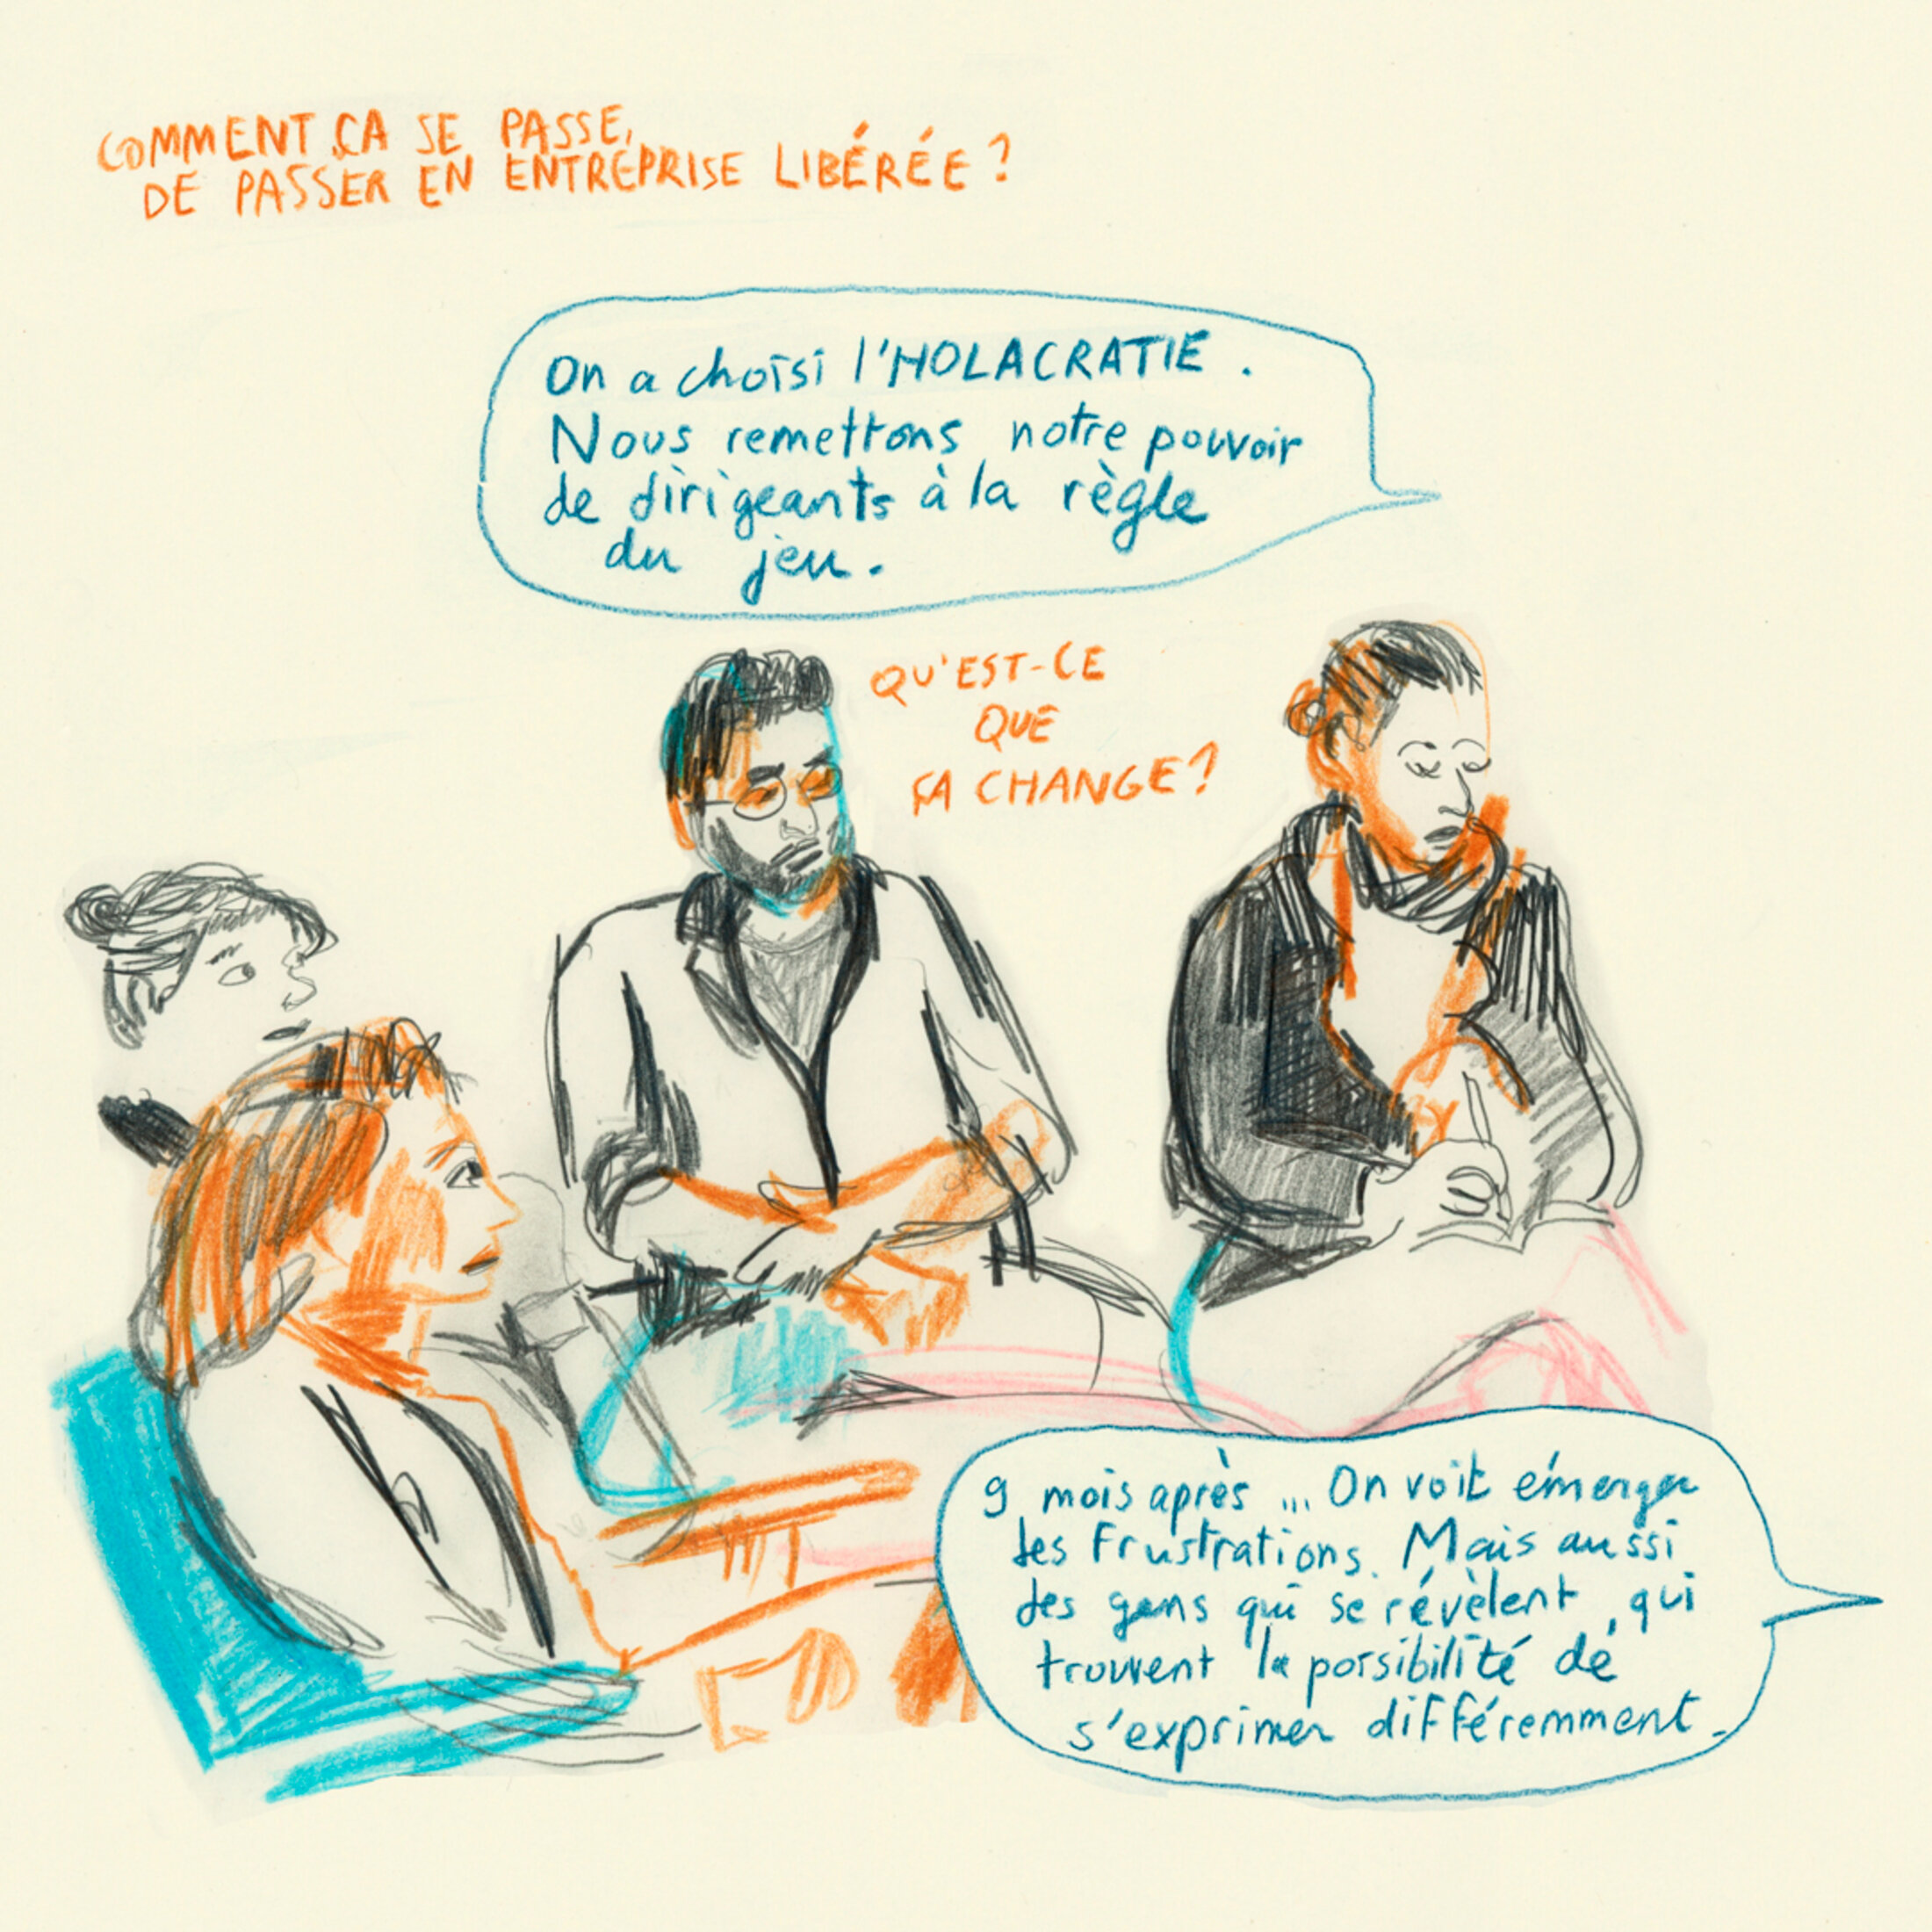 COMMENT ÇA SE PASSE,
DE PASSER EN ENTREPRISE LIBÉRÉE ?
On a choisi l'HOLACRATIE.
Nous remettons notre pouvoir
de dirigeants à la règle
du jeu.
QU'EST-CE
QUE
ÇA CHANGE ?
9 mois après ... On voit émerger
des frustrations. Mais aussi
des gens qui se révèlent, qui
trouvent la possibilité de
s'exprimer différemment.